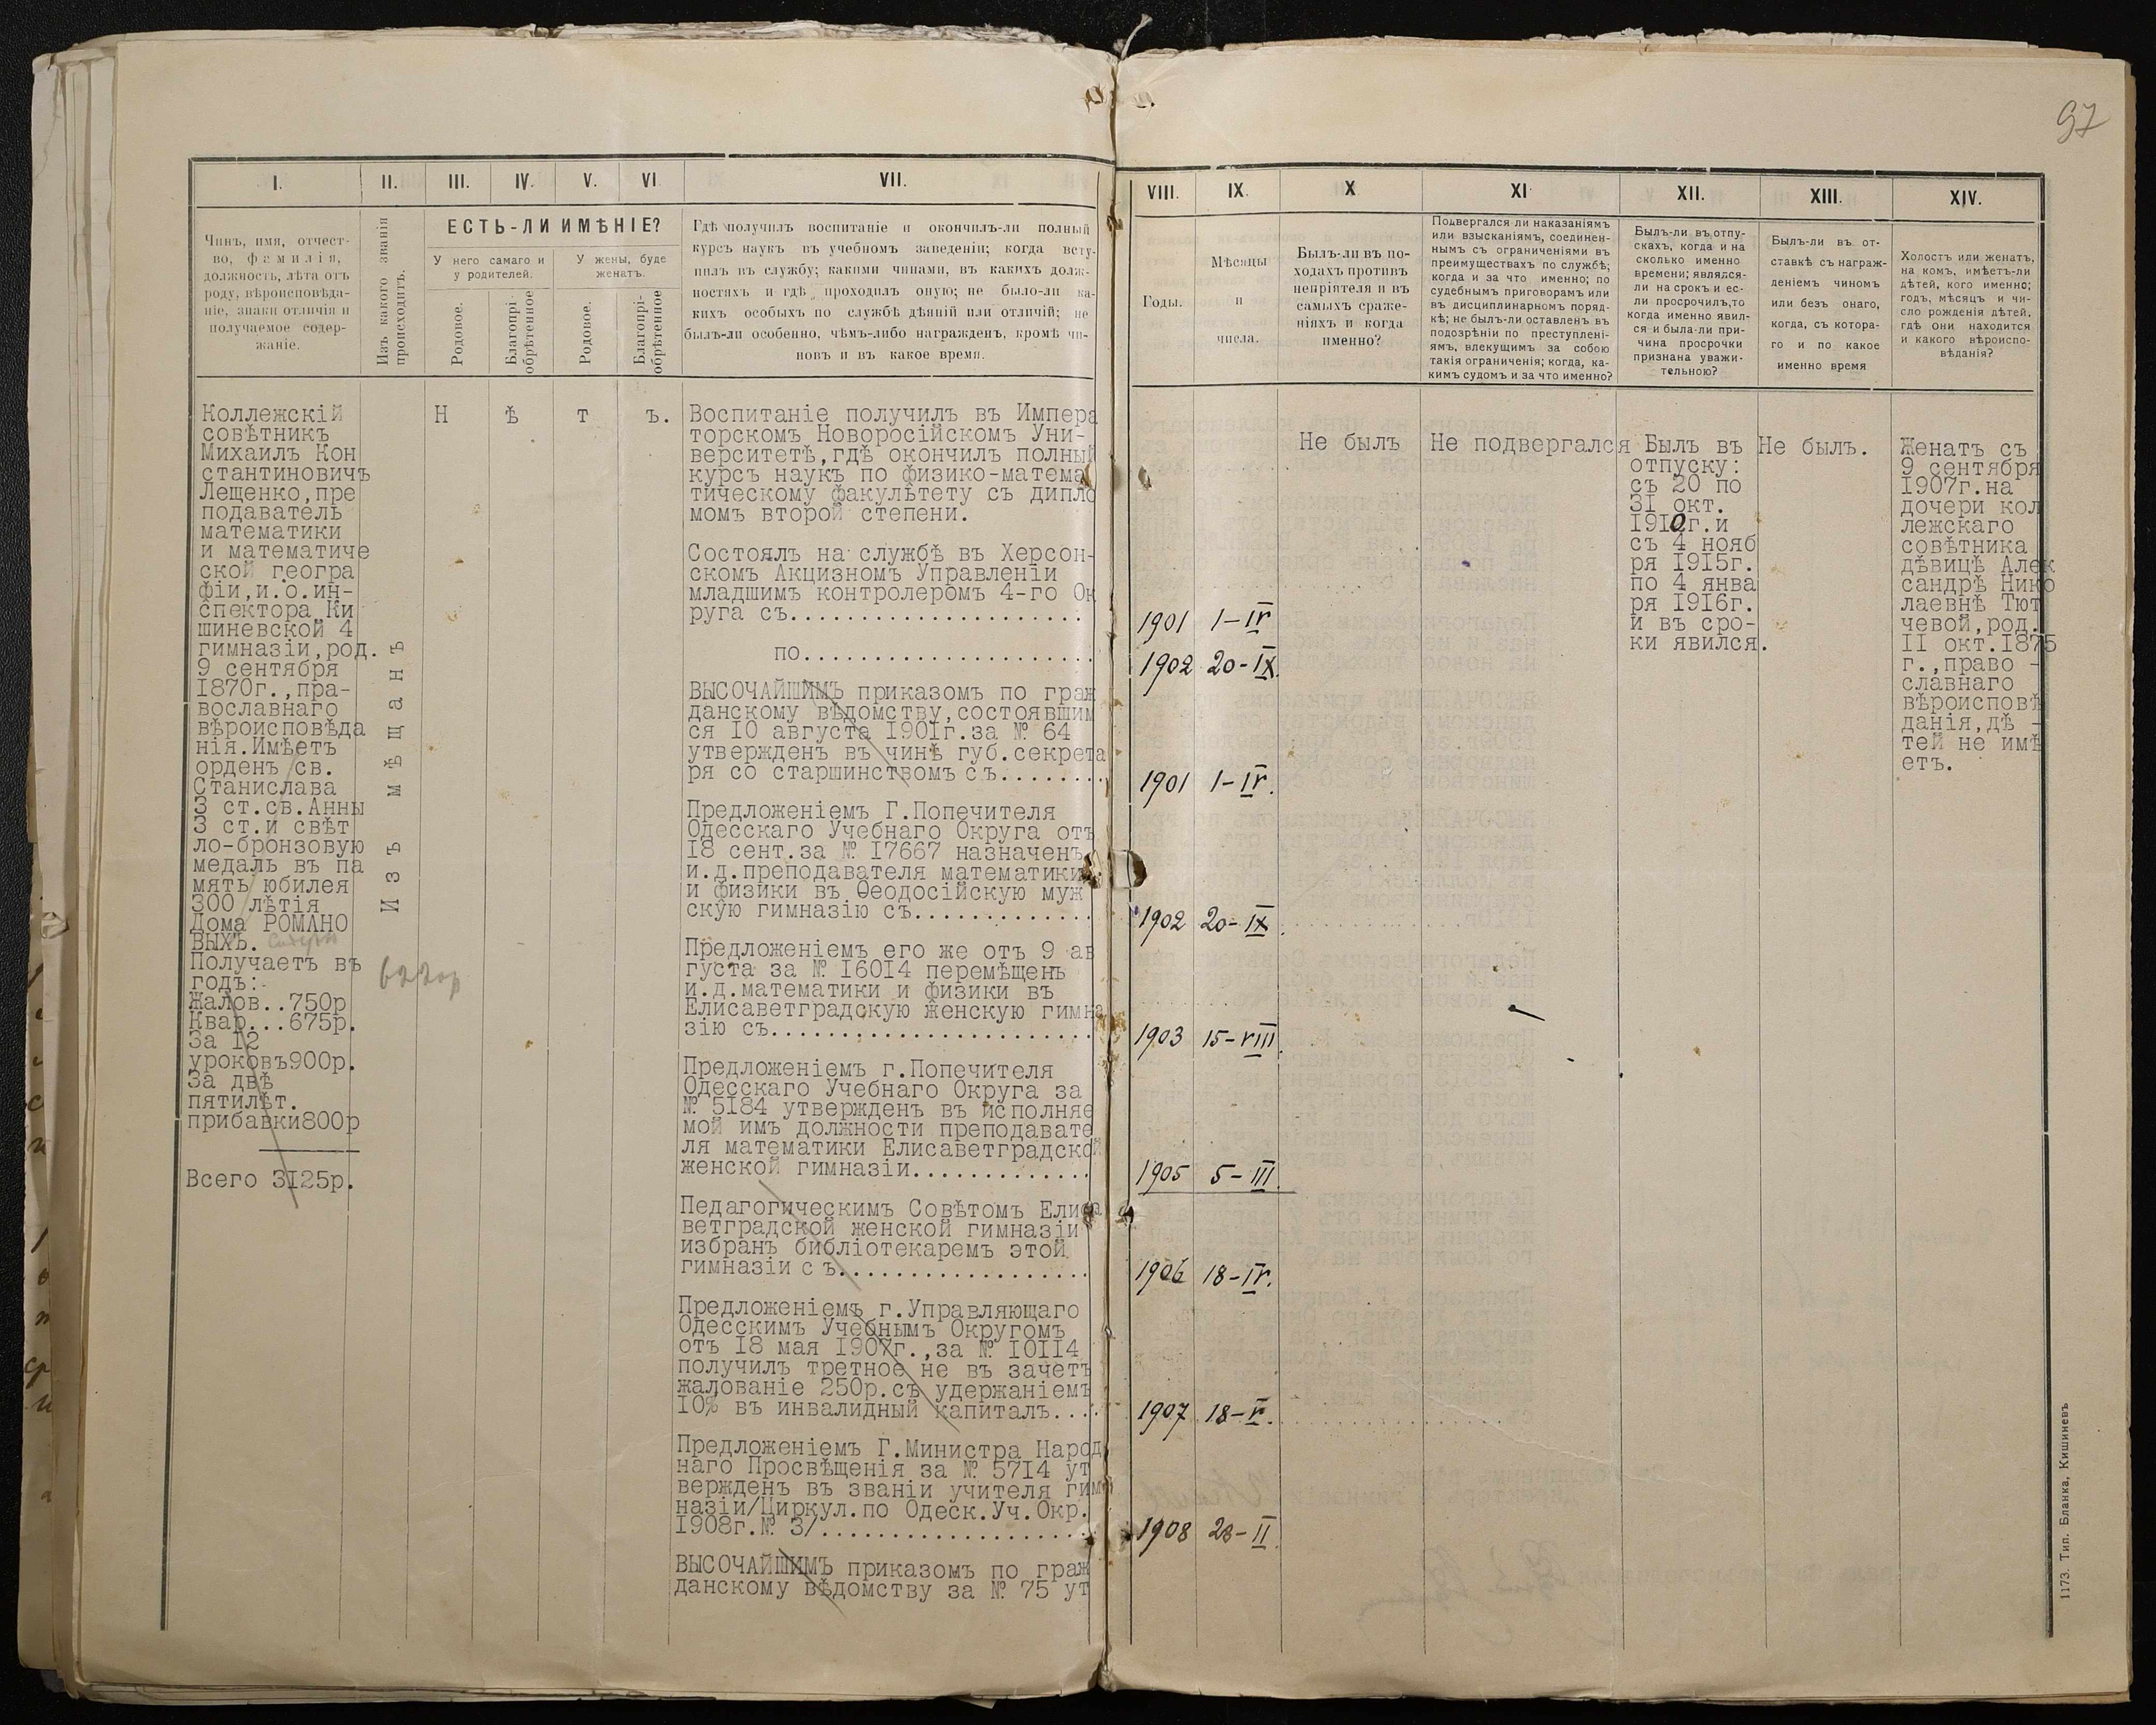 97
I.
II.
III.
IV.
V.
VI
VII.
VIII.
IX.
X
XI
XII.
XIII.
XIV.
Чинъ, имя, отчест-
во, фамилія,
должность, лѣта отъ
роду, вѣроисповѣда-
ніе, знаки отличія и
получаемое содер-
жаніе.
Изъ какого званія
происходитъ.
ЕСТЬ-ЛИ ИМѢНІЕ?
У него самаго и
у родителей.
У жены, буде
женатъ.
Родовое.
Благопрі-
обрѣтенное
Родовое.
Благопрі-
обрѣтенное
Гдѣ получилъ воспитаніе и окончилъ-ли полный
курсъ наукъ въ учебномъ заведеніи; когда всту-
пилъ въ службу; какими чинами, въ какихъ долж-
ностяхъ и гдѣ проходилъ оную; не было-ли ка-
кихъ особыхъ по службѣ дѣяній или отличій; не
былъ-ли особенно, чѣмъ-либо награжденъ, кромѣ чи-
новъ и въ какое время.
Годы.
Мѣсяцы
и
числа.
Былъ-ли въ по-
ходахъ противъ
непріятеля и въ
самыхъ сраже-
ніяхъ и когда
именно?
Подвергался ли наказаніямъ
или взысканіямъ, соединен-
нымъ съ ограниченіями въ
преимуществахъ по службѣ;
когда и за что именно; по
судебнымъ приговорамъ или
въ дисциплинарномъ поряд-
кѣ; не былъ-ли оставленъ въ
подозрѣніи по преступлені-
ямъ, влекущимъ за собою
такія ограниченія; когда, ка-
кимъ судомъ и за что именно?
Былъ-ли въ отпу-
скахъ, когда и на
сколько именно
времени; являлся-
ли на срокъ и ес-
ли просрочилъ, то
когда именно явил-
ся и была-ли при-
чина просрочки
признана уважи-
тельною?
Былъ-ли въ от-
ставкѣ съ награж-
деніемъ чиномъ
или безъ онаго,
когда, съ котора-
го и по какое
именно время
Холостъ или женатъ,
на комъ, имѣетъ-ли
дѣтей, кого именно;
годъ, мѣсяцъ и чи-
сло рожденія дѣтей,
гдѣ они находится
и какого вѣроиспо-
вѣданія?
Коллежскій
совѣтникъ
Михаилъ Кон
стантиновичъ
Лещенко,пре
подаватель
математики
и математиче
ской геогра
фіи,и.о.ин-
спектора Ки
шиневской 4
гимназіи,род.
9 сентября
1870г.,пра-
вославнаго
вѣроисповѣда
нія.Имѣетъ
орденъ св.
Станислава
3 ст.св.Анны
3 ст.и свѣт
ло-бронзовую
медаль въ па
мять юбилея
300 лѣтія
Дома РОМАНО
ВЫХЪ.
Получаетъ въ
годъ:-
Жалов..750р
Квар...675р.
За 12
уроковъ900р.
За двѣ
пятилѣт.
прибавки800р
Всего 3125р.
Изъ мѣщанъ
6220р
Н ѣ т ъ.
Воспитаніе получилъ въ Импера
торскомъ Новоросійскомъ Уни-
верситетѣ,гдѣ окончилъ полный
курсъ наукъ по физико-матема
тическому факультету съ дипло
момъ второй степени.
Состоялъ на службѣ въ Херсон-
скомъ Акцизномъ Управленіи
младшимъ контролеромъ 4-го Ок
руга съ.....................
по....................
ВЫСОЧАЙШИМЪ приказомъ по граж
данскому вѣдомству,состоявшим
ся 10 августа 1901г.за № 64
утвержденъ въ чинѣ губ.секрета
ря со старшинствомъ съ........
Предложеніемъ Г.Попечителя
Одесскаго Учебнаго Округа отъ
18 сент.за № 17667 назначенъ
и.д.преподавателя математики
и физики въ Ѳеодосійскую муж
скую гимназію съ.............
Предложеніемъ его же отъ 9 ав
густа за № 16014 перемѣщенъ
и.д.математики и физики въ
Елисаветградскую женскую гимна
зію съ.......................
Предложеніемъ г.Попечителя
Одесскаго Учебнаго Округа за
№ 5184 утвержденъ въ исполняе
мой имъ должности преподавате
ля математики Елисаветградской
женской гимназіи.............
Педагогическимъ Совѣтомъ Елиса
ветградской женской гимназіи
избранъ библіотекаремъ этой
гимназіи съ..................
Предложеніемъ г.Управляющаго
Одесскимъ Учебнымъ Округомъ
отъ 18 мая 1907г.,за № 10114
получилъ третное не въ зачетъ
жалованіе 250р.съ удержаніемъ
10% въ инвалидный капиталъ....
Предложеніемъ Г.Министра Народ
наго Просвѣщенія за № 5714 ут
вержденъ въ званіи учителя гим
назіи/Циркул.по Одеск.Уч.Окр.
1908г.№ 3/...................
ВЫСОЧАЙШИМЪ приказомъ по граж
данскому вѣдомству за № 75 ут
1901 1-IV
1902 20-IX.
1901 1-IV.
1902 20-IX.
1903 15-VIII.
1905 5-III.
1906 18-IV.
1907 18-V.
1908 28-II.
Не былъ
Не подвергался
Былъ въ
отпуску:
съ 20 по
31 окт.
1910г.и
съ 4 нояб
ря 1915г.
по 4 янва
ря 1916г.
и въ сро-
ки явился.
Не былъ.
Женатъ съ
9 сентября
1907г.на
дочери кол
лежскаго
совѣтника
дѣвицѣ Алек
сандрѣ Нико
лаевнѣ Тют
чевой,род.
11 окт.1875
г.,право -
славнаго
вѣроисповѣ
данія,дѣ -
тей не имѣ
етъ.
1173. Тип. Бланка, Кишиневъ